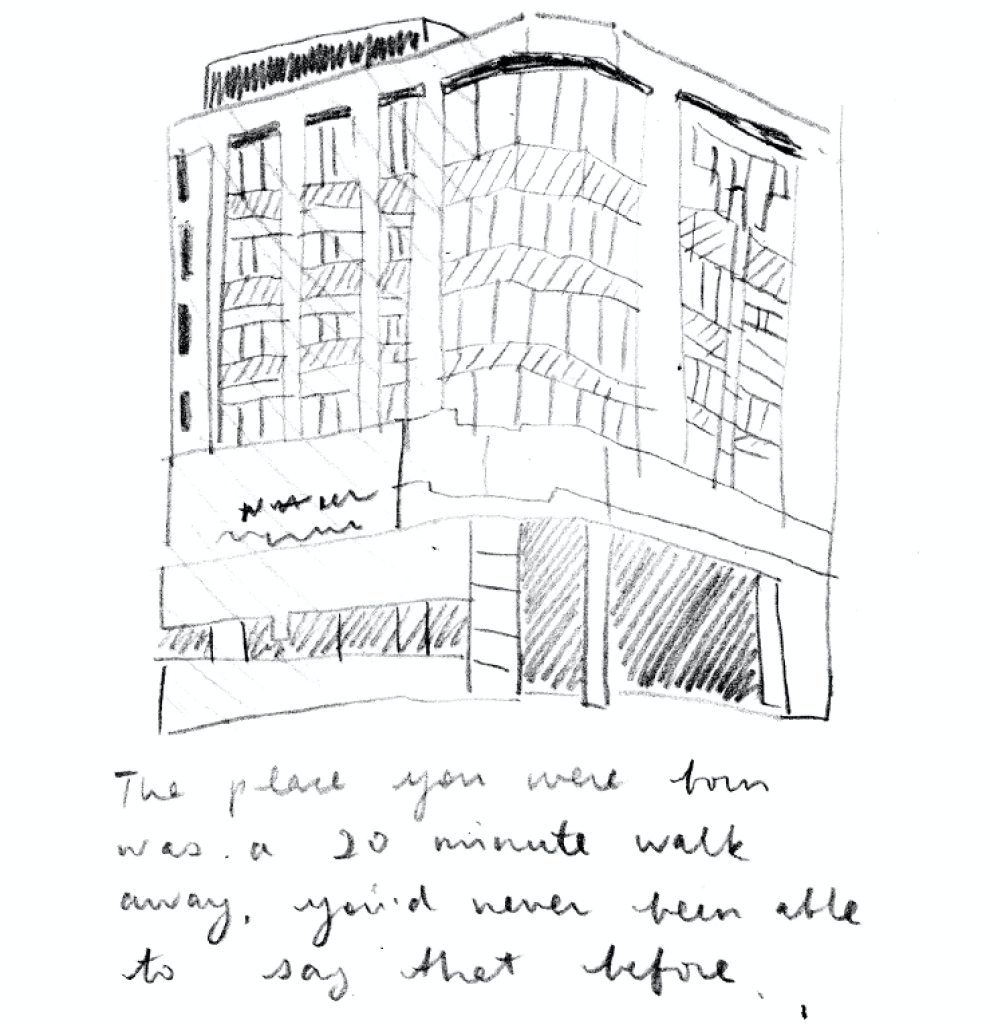 The place you were born
was a 20 minute walk
away, you'd never been able
to say that before.